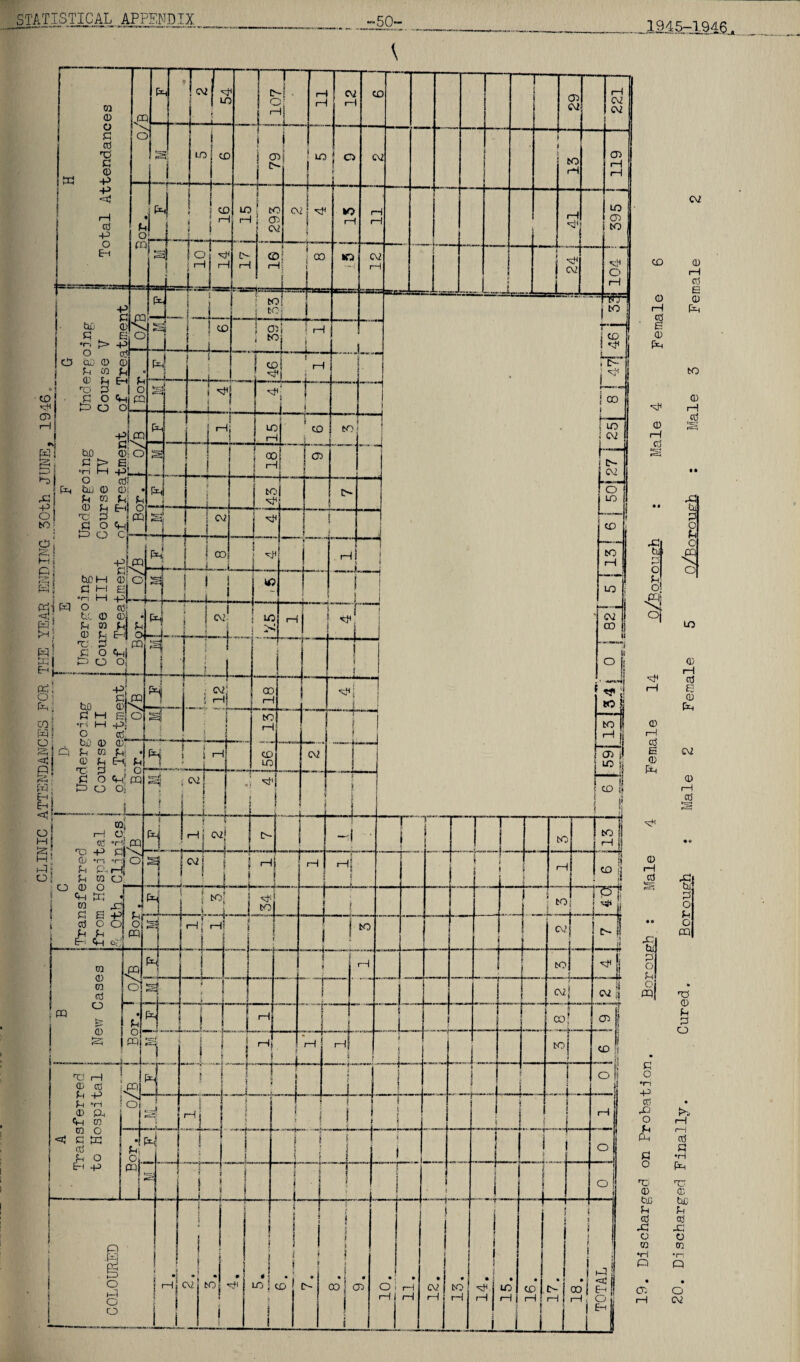 STATISTICAL APPENDIX
-50-
1945-1946.
CLINIC ATTENDANCES FOR THE YEAR ENDING 30th JUNE, 1946.
COLOURED
A Transferred to Hospital
B New Cases
C Transferred from Hospital & Oth. Clinics
D Undergoing Course II of Treatment
E Undergoing Course III of Treatment
F Undergoing Course IV of Treatment
G Undergoing Course V of Treatment
H Total Attendances
Bor. O/B Bor. O/B Bor. O/B Bor. O/B Bor. O/B Bor. O/B Bor. O/B Bor. O/B
M F M F M F M F M F M F M F M F M F M F M F M F M F M F M F M F
1.
2. 1 1 1 2 10 5 2
3. 1 3 2 2 1 12 2 8 2 1 4 6 14 16 6 54
4. 17 15
5. 1 1 34 1 7 4 56 13 18 75 5 4 4 43 18 15 4 46 39 33 16 293 79 107
6. 2
7. 1 1 - 2 1 7 9 6 1 1 8 4 5 11
8. 1 1 3 1 4 4 1 3 5 15 0 12
9. 12 11 2 6
10.
11.
12.
13.
14.
15.
16.
17. 3 8 2 3 2 3 1 3 24 41 13 29
18.
TOTAL 0 0 1 0 6 9 2 4 7 40 6 13 6 59 13 34 0 82 5 13 6 50 27 25 8 47 46 33 104 395 119 221
19. Discharged on Probation. Borough : Male 4 Female 14 O/Borough : Male 4 Female 6
20. Discharged Finally. Cured. Borough : Male 2 Female 5 O/Borough : Male 3 Female 2